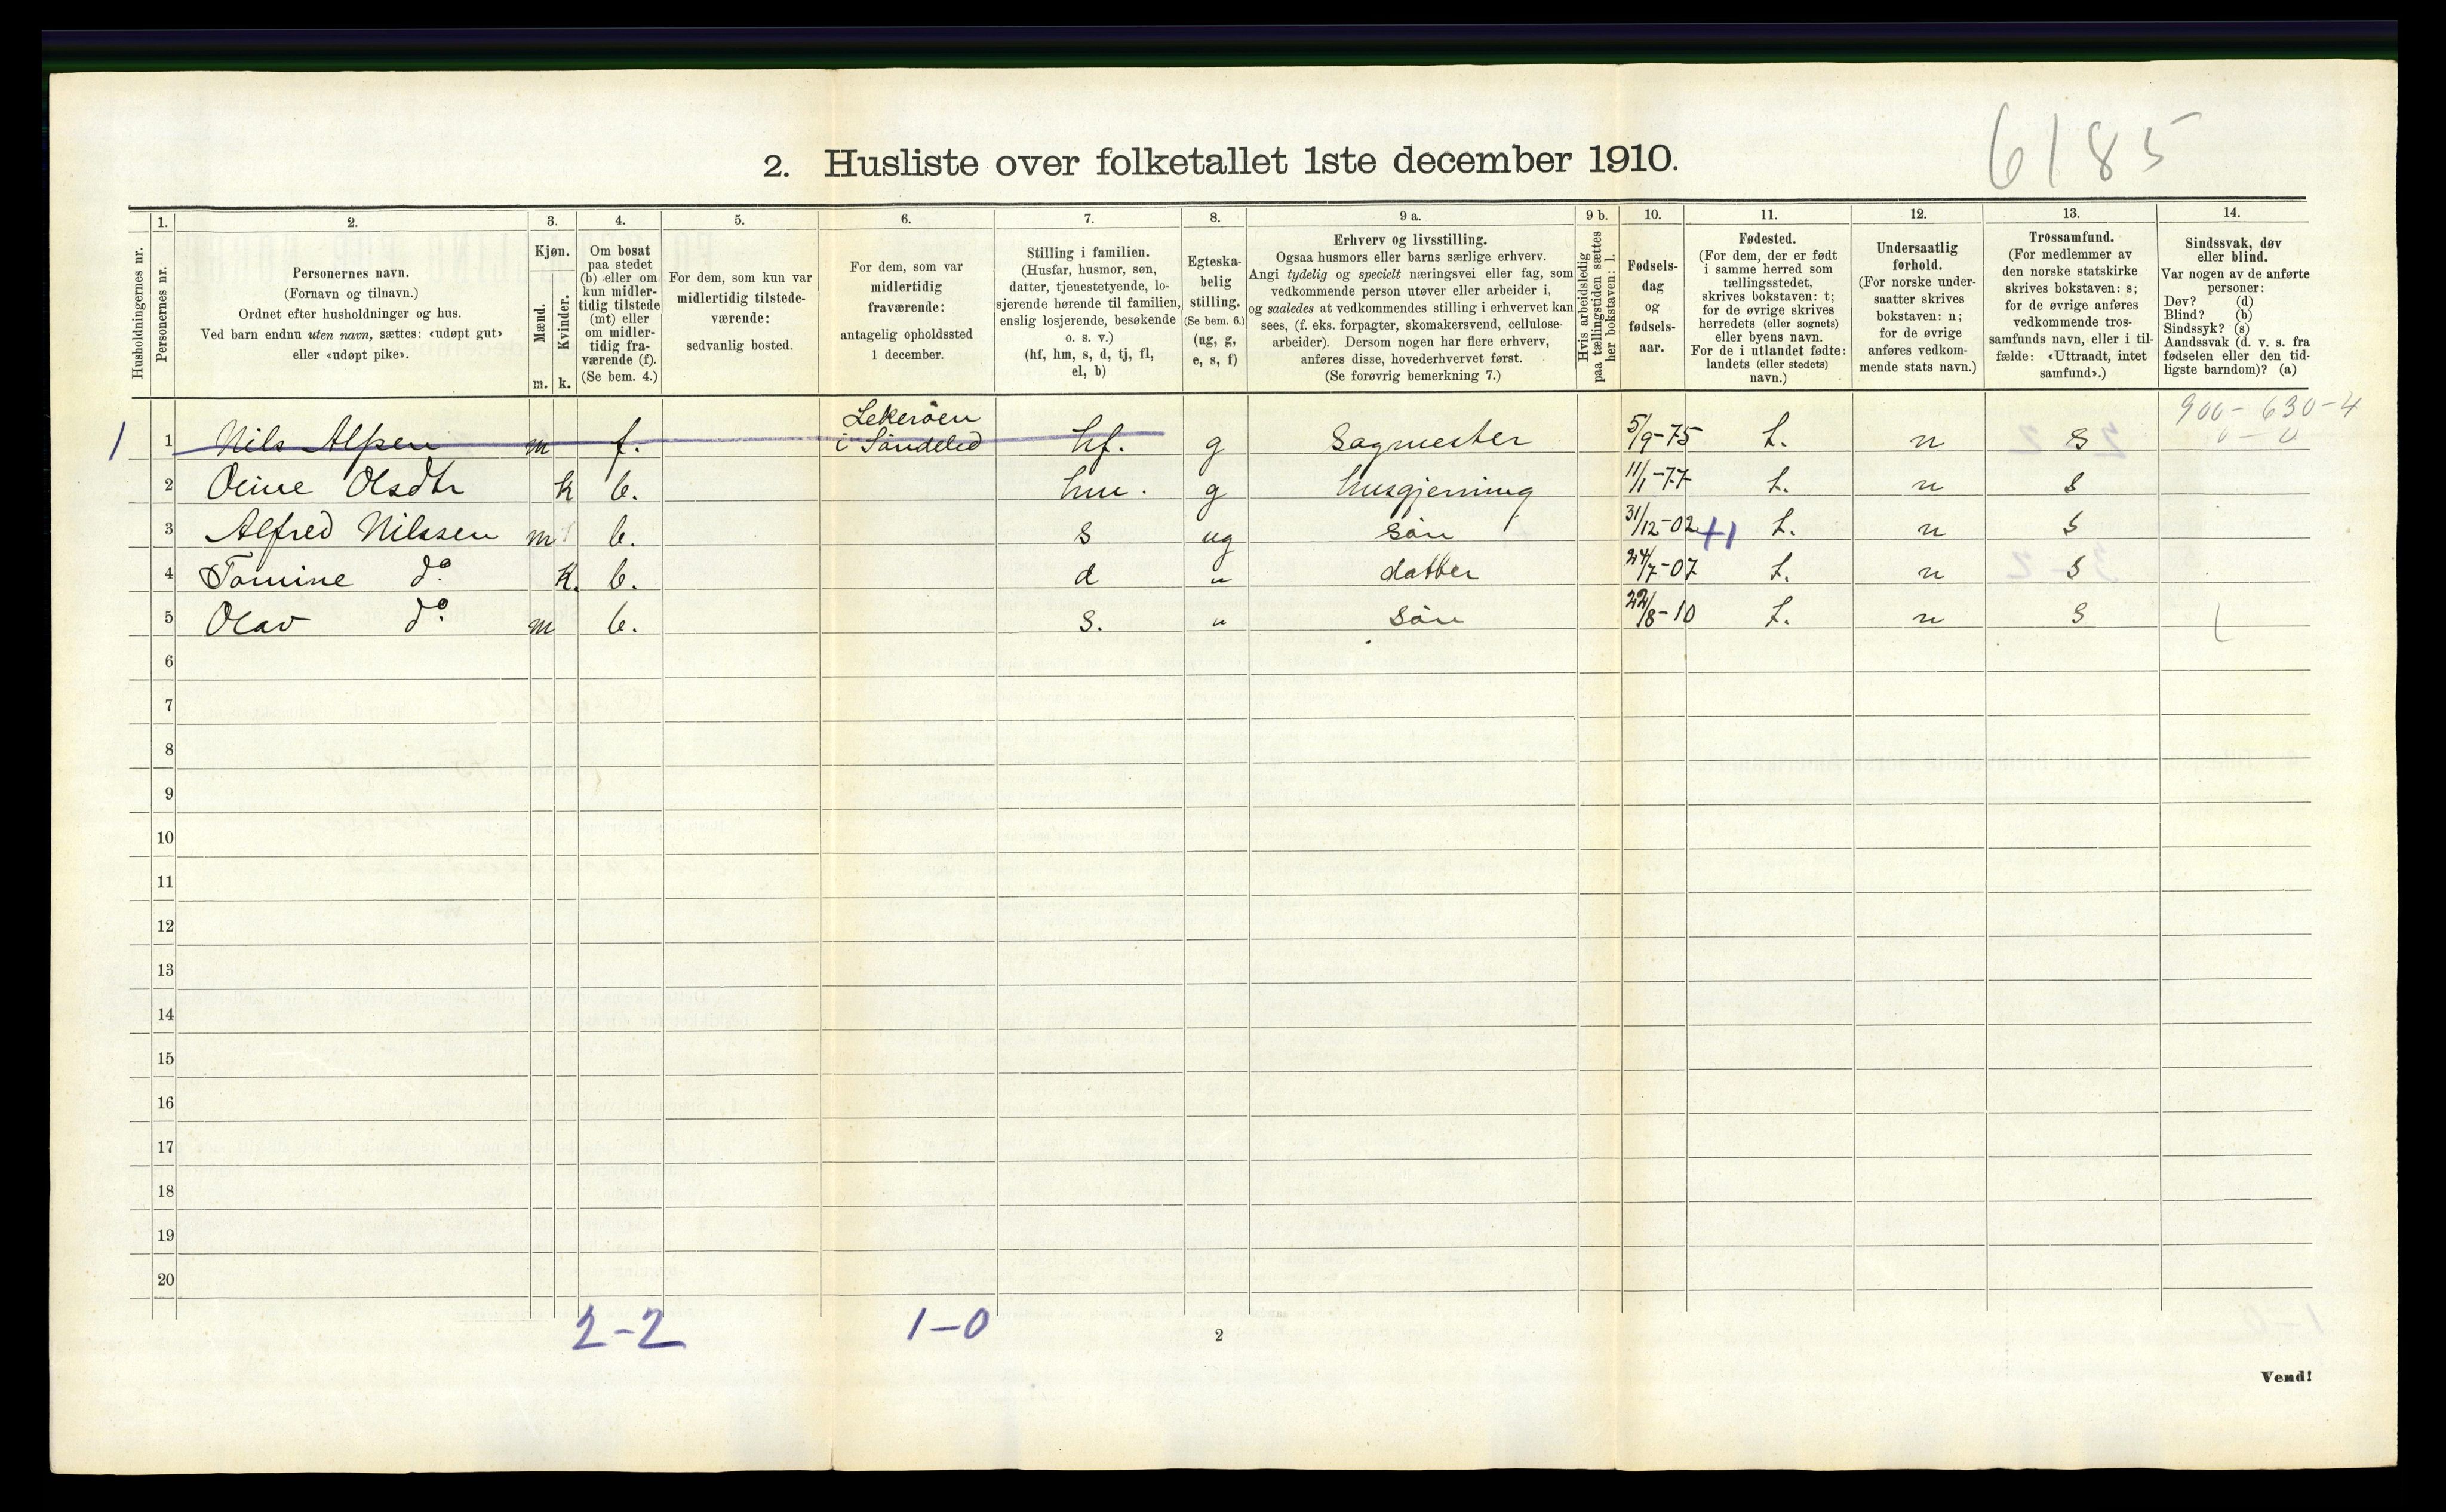 6185
2. Husliste over folketallet 1ste december 1910.
Husholdningernes nr.
1.
Personernes nr.
2.
Personernes navn.
(Fornavn og tilnavn.)
Ordnet efter husholdninger og hus.
Ved barn endnu uten navn, sættes: «udøpt gut»
eller «udøpt pike».
3.
Kjøn.
Mænd.
Kvinder.
m. k.
4.
Om bosat
paa stedet
(b) eller om
kun midler-
tidig tilstede
(mt) eller
om midler-
tidig fra-
værende (f).
(Se bem. 4.)
5.
For dem, som kun var
midlertidig tilstede-
værende:
sedvanlig bosted.
6.
For dem, som var
midlertidig
fraværende:
antagelig opholdssted
1 december.
7.
Stilling i familien.
(Husfar, husmor, søn,
datter, tjenestetyende, lo-
sjerende hørende til familien,
enslig losjerende, besøkende
o. s. v.)
(hf, hm, s, d, tj, fl,
el, b)
8.
Egteska-
belig
stilling.
(Se bem. 6.)
(ug, g,
e, s, f)
9 a.
Erhverv og livsstilling.
Ogsaa husmors eller barns særlige erhverv.
Angi tydelig og specielt næringsvei eller fag, som
vedkommende person utøver eller arbeider i,
og saaledes at vedkommendes stilling i erhvervet kan
sees, (f. eks. forpagter, skomakersvend, cellulose-
arbeider). Dersom nogen har flere erhverv,
anføres disse, hovederhvervet først.
(Se forøvrig bemerkning 7.)
9 b.
Hvis arbeidsledig
paa tællingstiden sættes
her bokstaven: l.
10.
Fødsels-
dag
og
fødsels-
aar.
11.
Fødested.
(For dem, der er født
i samme herred som
tællingsstedet,
skrives bokstaven: t;
for de øvrige skrives
herredets (eller sognets)
eller byens navn.
For de i utlandet fødte:
landets (eller stedets)
navn.)
12.
Undersaatlig
forhold.
(For norske under-
saatter skrives
bokstaven: n;
for de øvrige
anføres vedkom-
mende stats navn.)
13.
Trossamfund.
(For medlemmer av
den norske statskirke
skrives bokstaven: s;
for de øvrige anføres
vedkommende tros-
samfunds navn, eller i til-
fælde: «Uttraadt, intet
samfund».)
14.
Sindssvak, døv
eller blind.
Var nogen av de anførte
personer:
Døv? (d)
Blind? (b)
Sindssyk? (s)
Aandssvak (d. v. s. fra
fødselen eller den tid-
ligste barndom)? (a)
900-630-4
0-0
1 1 Nils Alfsen m f. Lekeröen i Söndeled hf. g Sagmester 5/9-75 t. n s
2 Oline Olsdtr k b. hm. g husgjerning 11/1-77 t. n s
3 Alfred Nilssen m b. s ug Sön 31/12-02 +1 t. n s
4 Tomine do. k. b. d " datter 24/7-07 t. n s
5 Olav do. m b. s. " Sön 22/8-10 t. n s
6
7
8
9
10
11
12
13
14
15
16
17
18
19
20
2-2 1-0
2
Vend!